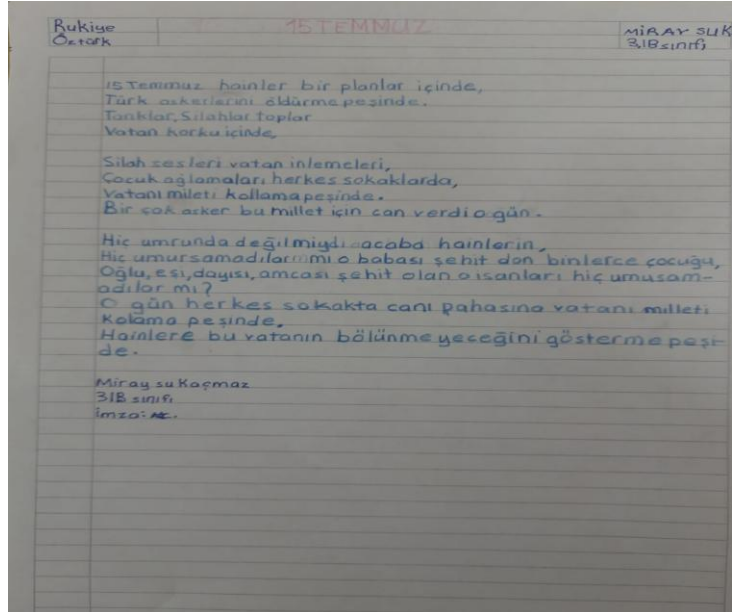 Rukiye
Öztürk
15 TEMMUZ
MİRAY SU K
3/B sınıfı
15 Temmuz hainler bir planlar içinde,
Türk askerlerini öldürme peşinde.
Tanklar, Silahlar toplar
Vatan korku içinde,
Silah sesleri vatan inlemeleri,
Çocuk ağlamaları herkes sokaklarda,
Vatanı mileti kollama peşinde.
Bir çok asker bu millet için can verdi o gün.
Hiç umrunda değilmiydi acaba hainlerin,
Hiç umursamadılar mı o babası şehit dan binlerce çocuğu,
Oğlu, eşi, dayısı, amcası şehit olan o isanları hiç umusam-
adılar mı?
O gün herkes sokakta canı pahasına vatanı milleti
Kolama peşinde,
Hainlere bu vatanın bölünmeyeceğini gösterme peşi-
de.
Miray su Kaçmaz
3/B sınıfı
İmza: